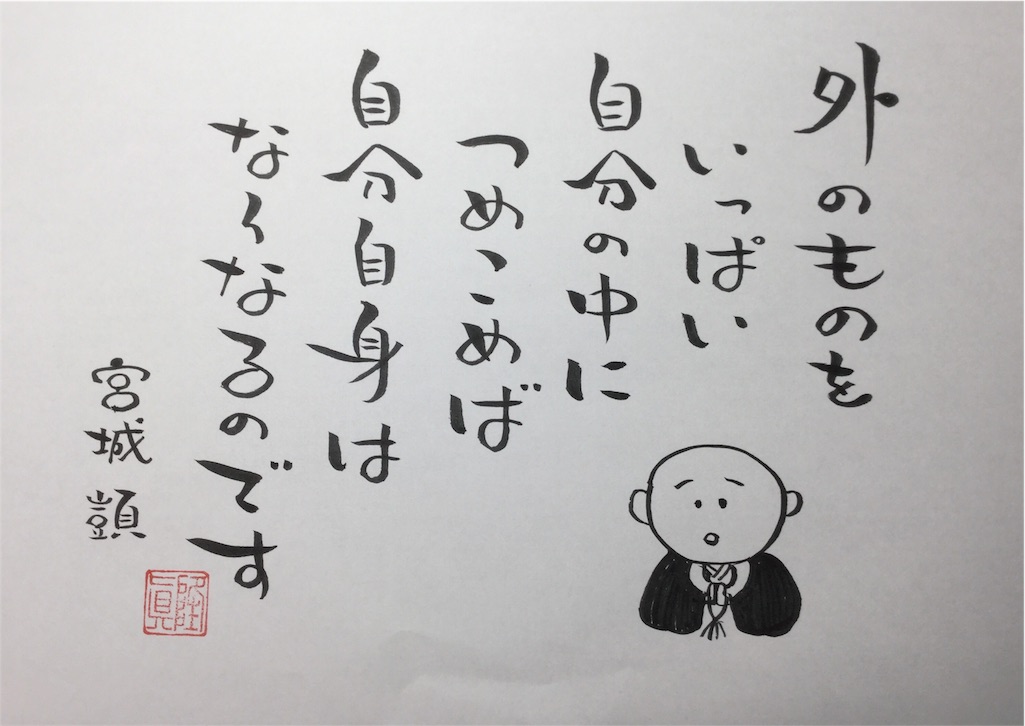 外のものを
いっぱい
自分の中に
つめこめば
自分自身は
なくなるのです
宮城 顗